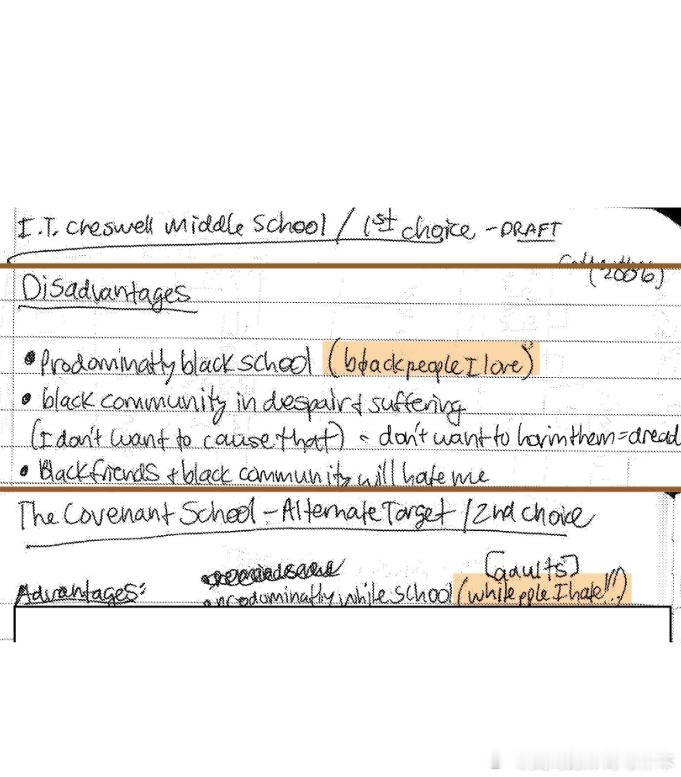 I.T. Creswell Middle School / 1st choice - DRAFT
(2006)
Disadvantages
• Prodominatly black school (black people I love)
• black community in despair & suffering
(I don't want to cause that) = don't want to harm them = dread
• Black friends + black community will hate me
The Covenant School - Alternate Target / 2nd choice
[adults]
Advantages: prodominatly white school (white pple I hate!!)